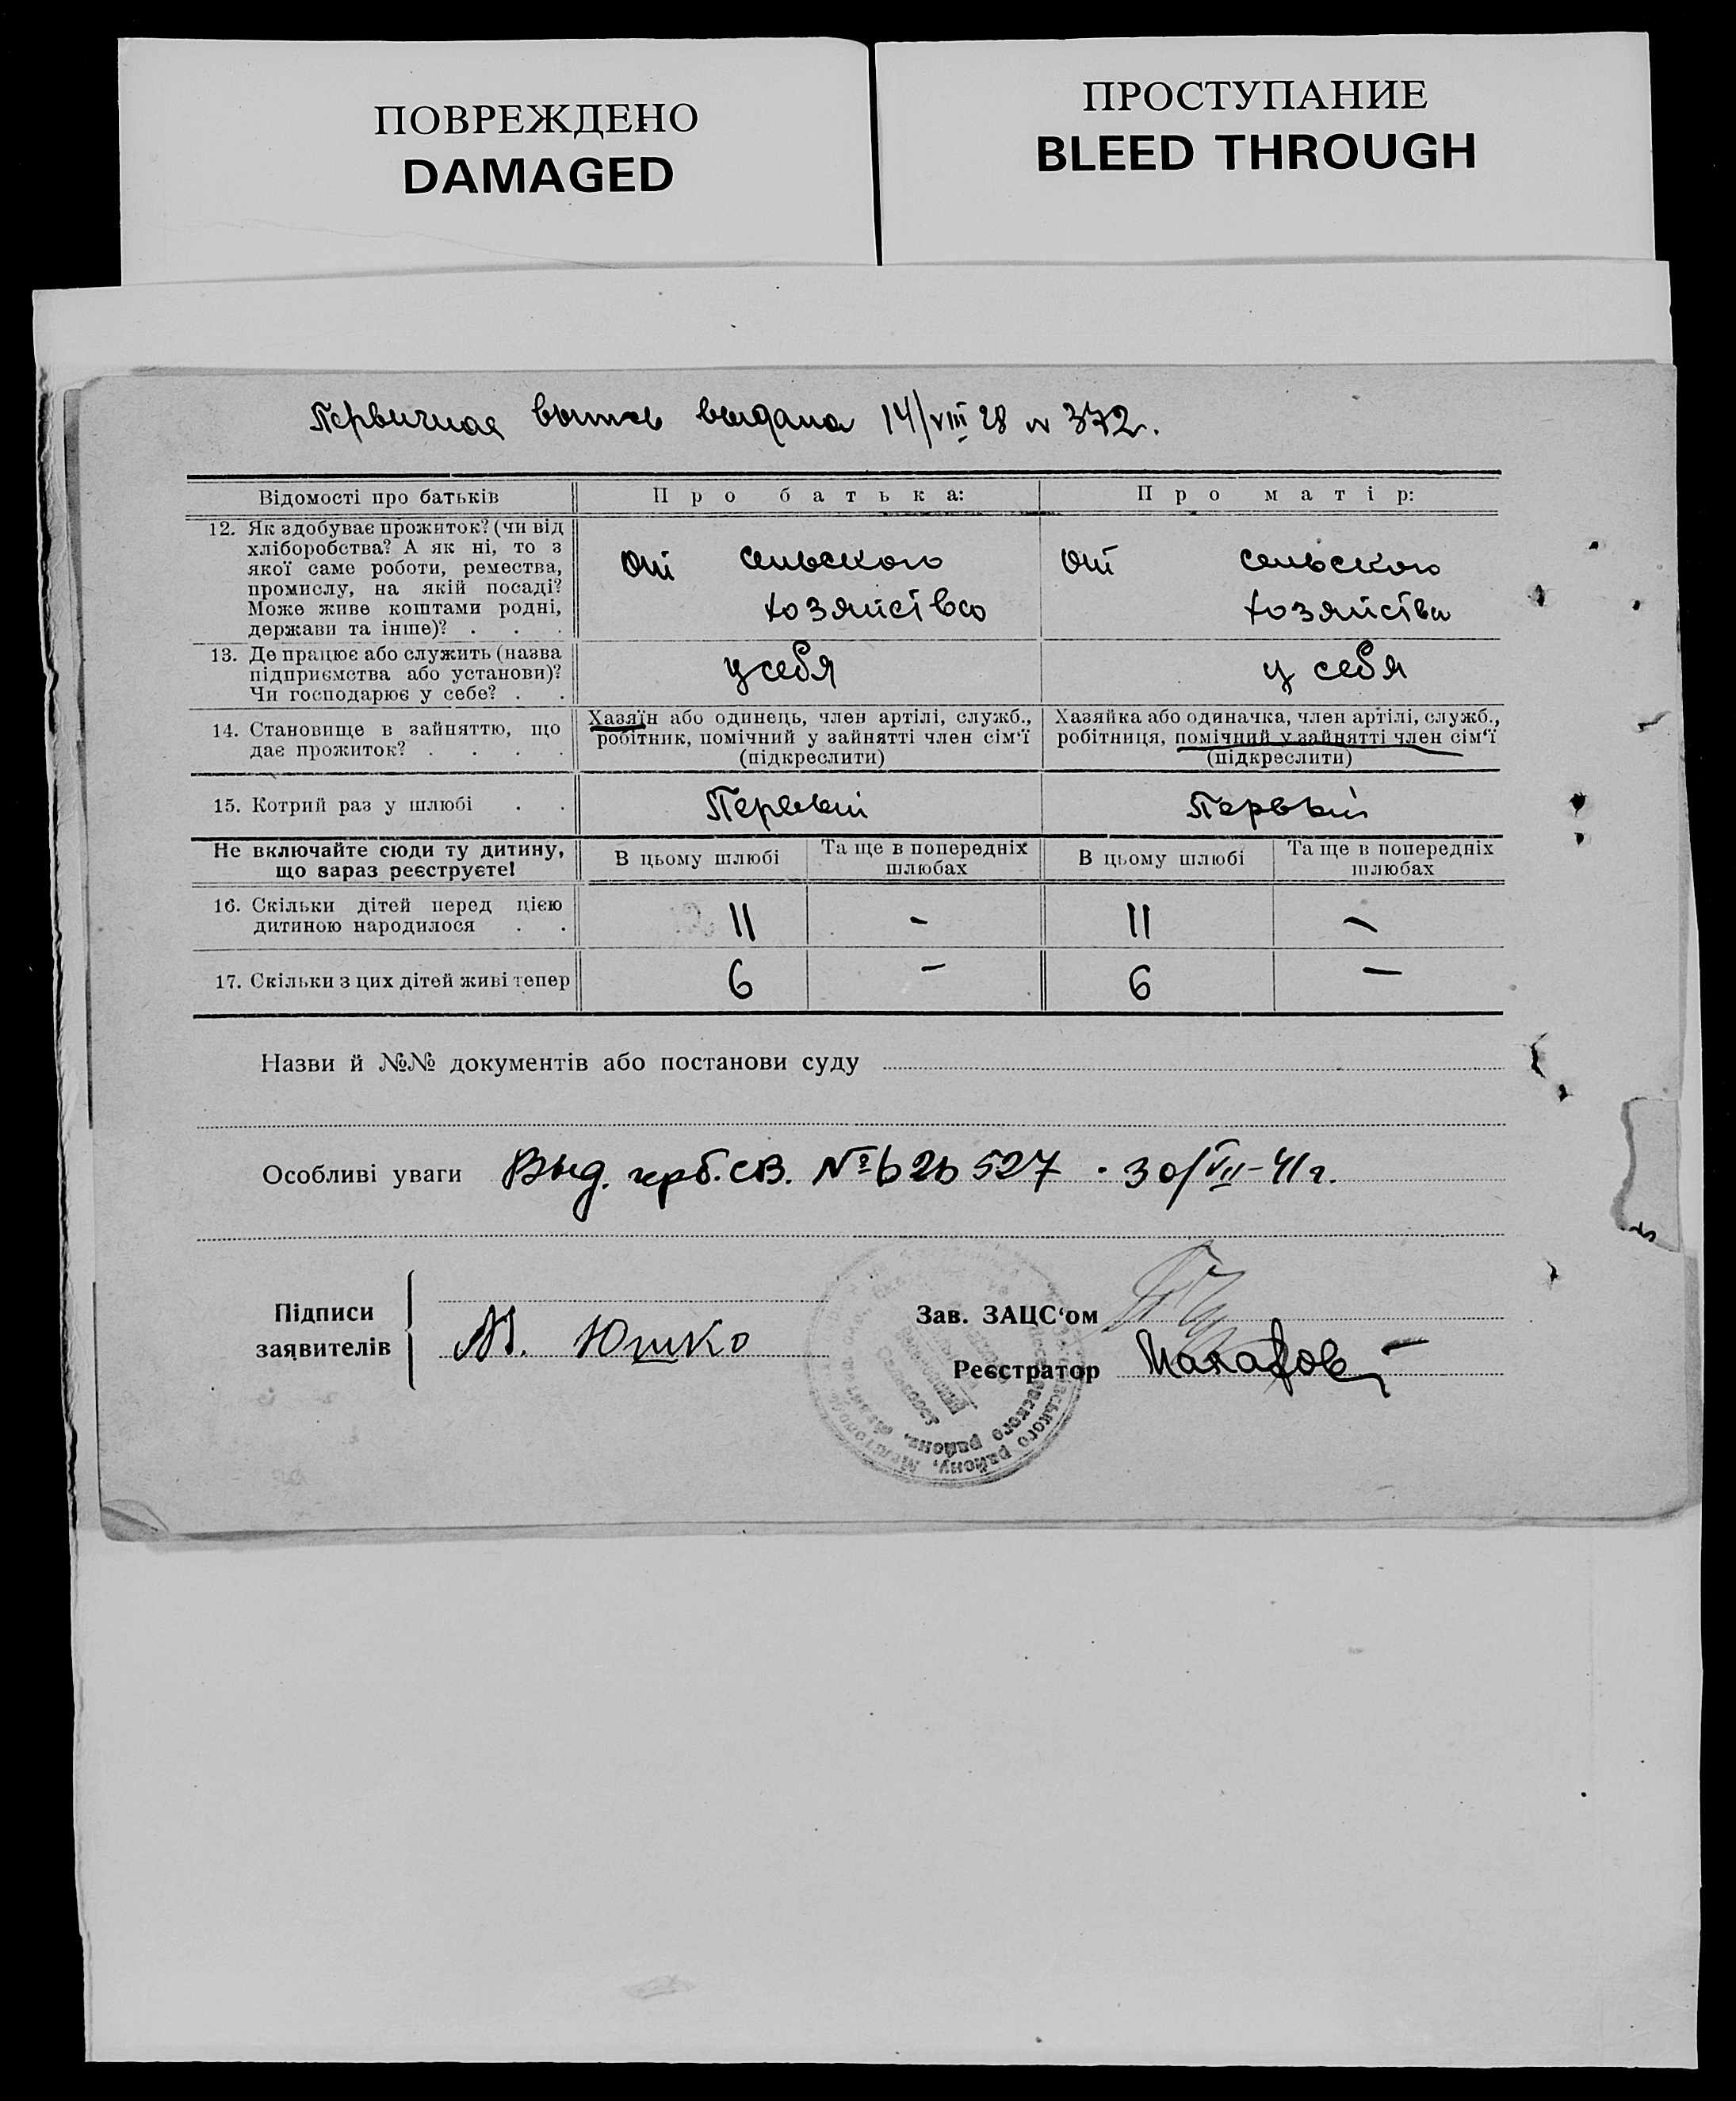 ПОВРЕЖДЕНО
DAMAGED
ПРОСТУПАНИЕ
BLEED THROUGH
Первичная выпись выдана 14/VIII 28 N 372.
Відомості про батьків
Про батька:
Про матір:
12. Як здобуває прожиток? (чи від
хліборобства? А як ні, то з
якої саме роботи, ремества,
промислу, на якій посаді?
Може живе коштами родні,
держави та інше)? . . .
от сельского
хозяйства
от сельского
хозяйства
13. Де працює або служить (назва
підприємства або установи)?
Чи господарює у себе? . .
у себя
у себя
14. Становище в зайняттю, що
дає прожиток? . . . .
Хазяїн або одинець, член артілі, служб.,
робітник, помічний у зайнятті член сім'ї
(підкреслити)
Хазяйка або одиначка, член артілі, служб.,
робітниця, помічний у зайнятті член сім'ї
(підкреслити)
15. Котрий раз у шлюбі . .
Первый
Первый
Не включайте сюди ту дитину,
що зараз реєструєте!
В цьому шлюбі
Та ще в попередніх
шлюбах
В цьому шлюбі
Та ще в попередніх
шлюбах
16. Скільки дітей перед цією
дитиною народилося . .
11
-
11
-
17. Скільки з цих дітей живі тепер
6
-
6
-
Назви й №№ документів або постанови суду
Особливі уваги Выд. герб. св. № 527 · 30/VII-41 г.
Підписи
заявителів
Юшко
Зав. ЗАЦС'ом
Реєстратор
району,
района,